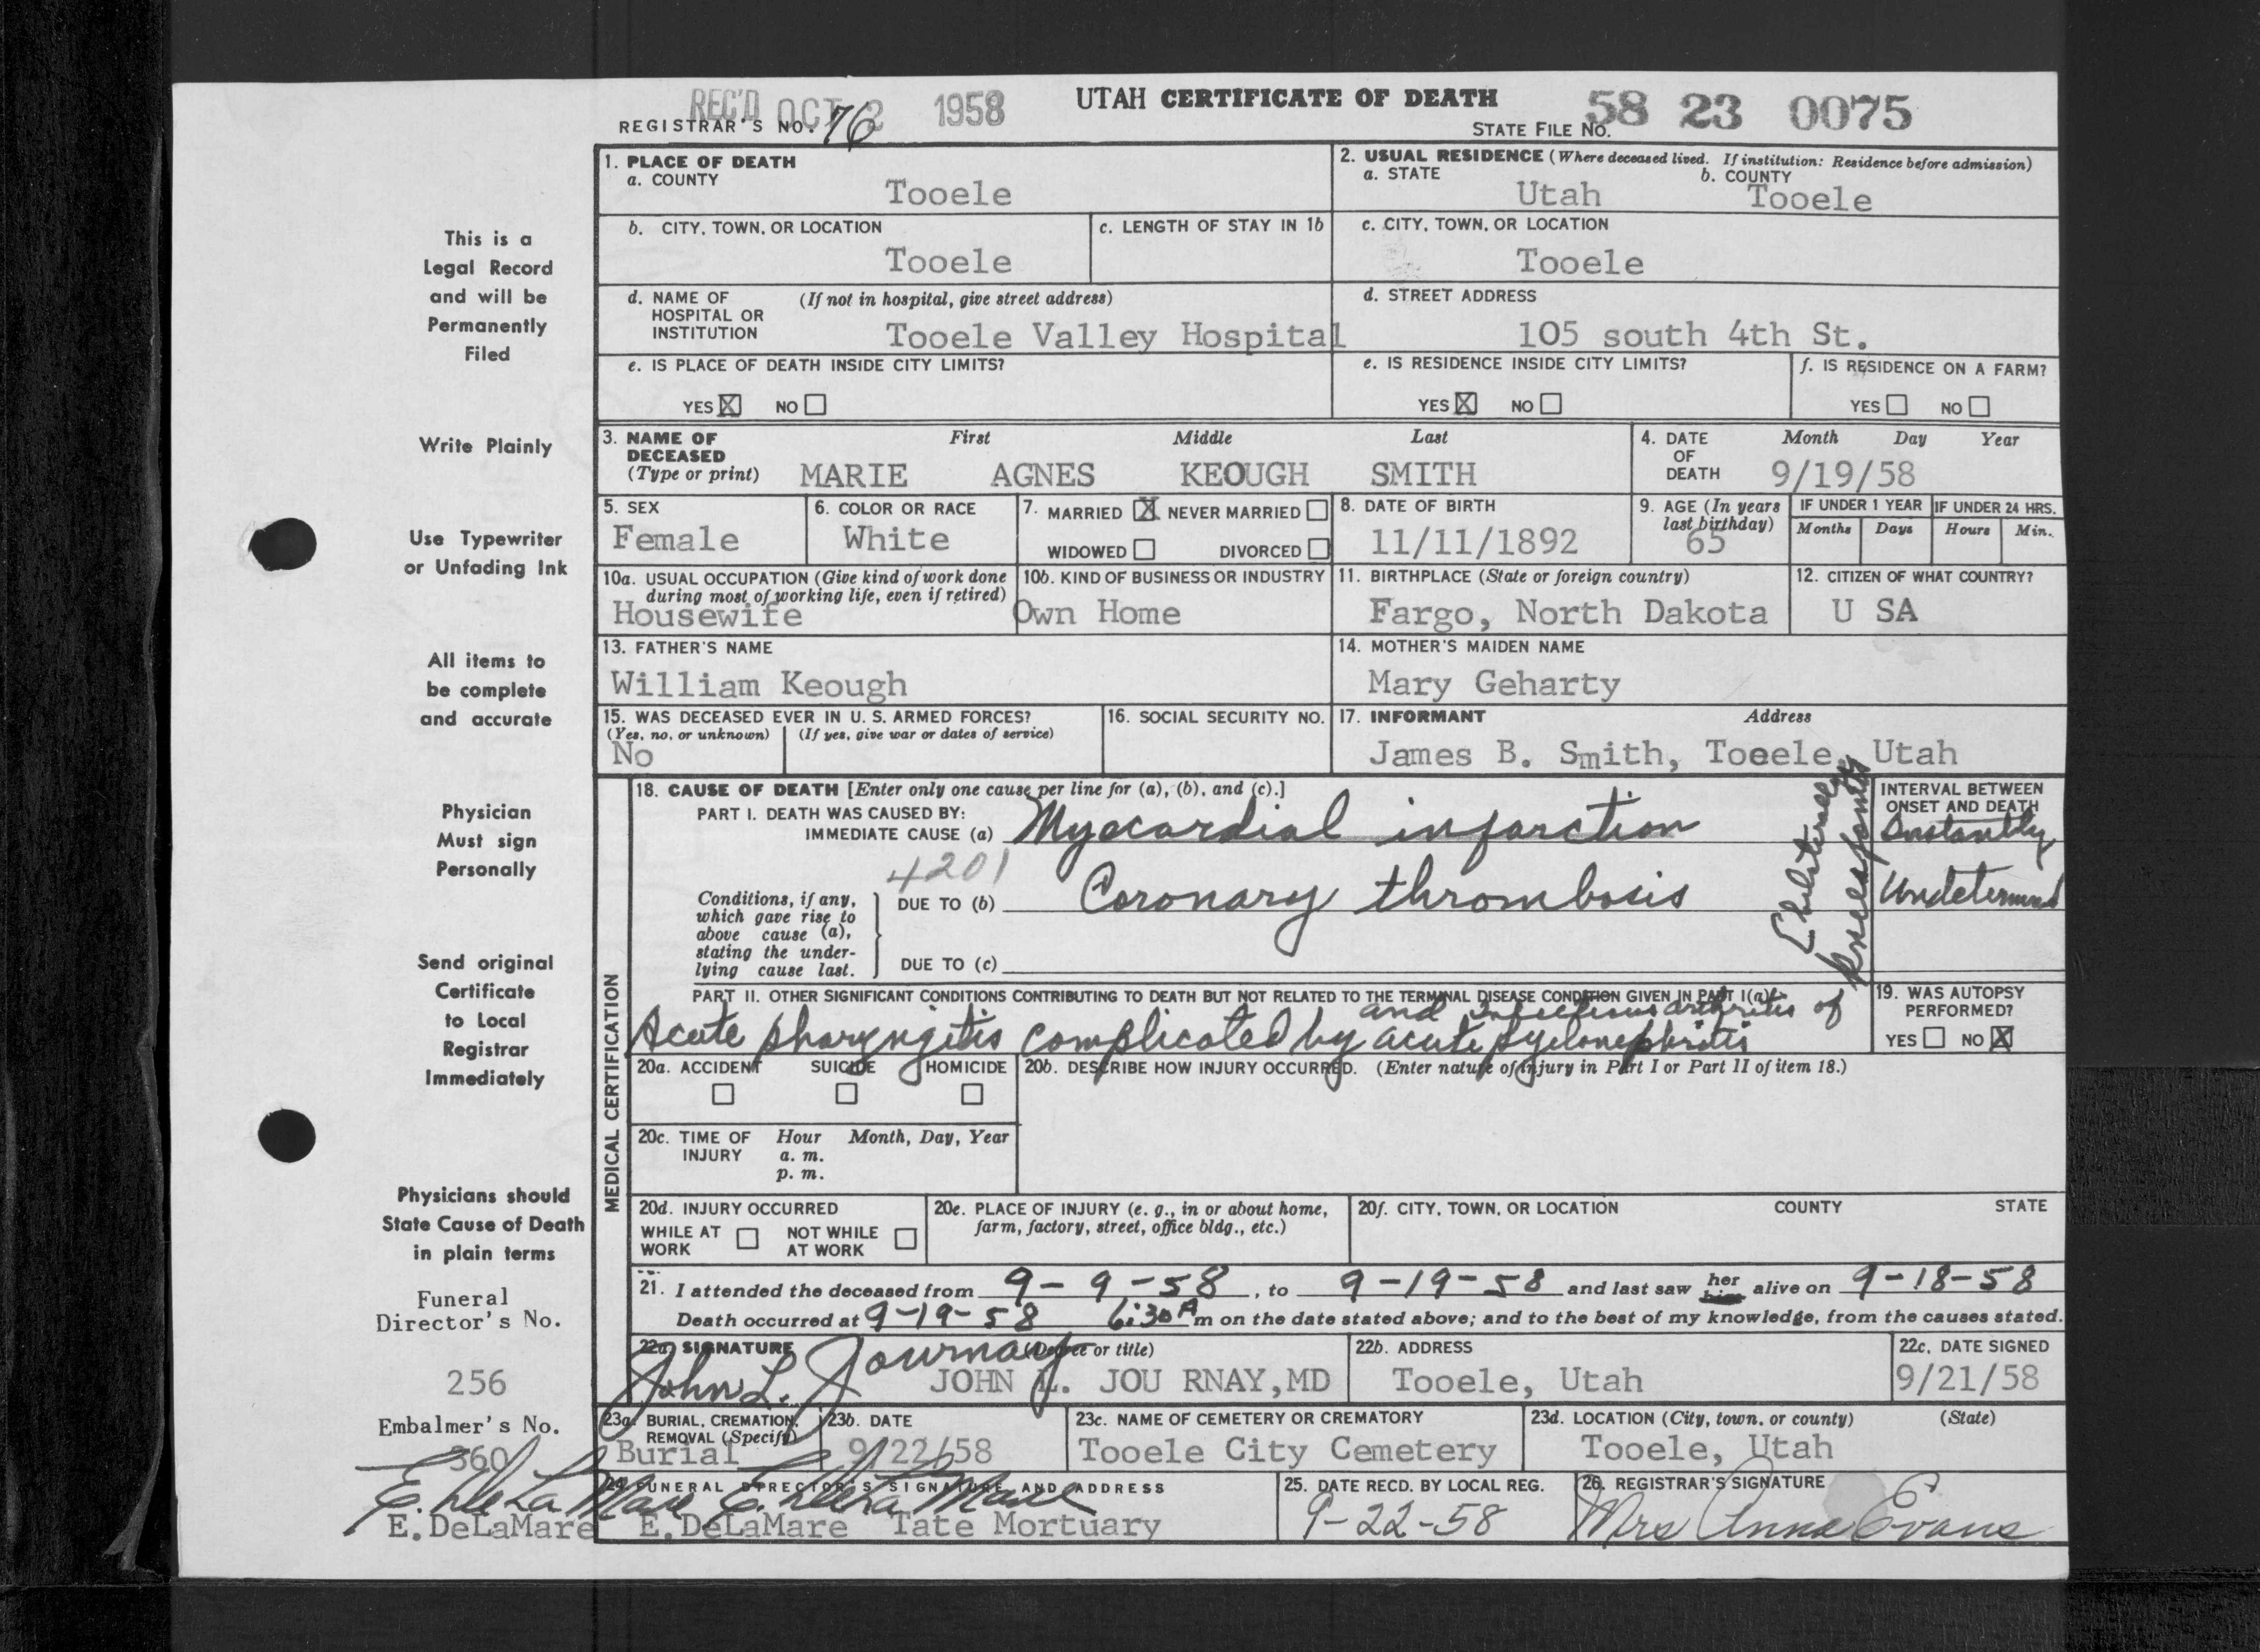 REC'D OCT 2 1958
UTAH CERTIFICATE OF DEATH
REGISTRAR'S NO. 76
STATE FILE NO. 58 23 0075
This is a
Legal Record
and will be
Permanently
Filed
Write Plainly
Use Typewriter
or Unfading Ink
All items to
be complete
and accurate
Physician
Must sign
Personally
Send original
Certificate
to Local
Registrar
Immediately
Physicians should
State Cause of Death
in plain terms
Funeral
Director's No.
256
Embalmer's No.
360
E. DeLaMare
E. DeLaMare
1. PLACE OF DEATH
a. COUNTY
Tooele
2. USUAL RESIDENCE (Where deceased lived. If institution: Residence before admission)
a. STATE Utah b. COUNTY Tooele
b. CITY, TOWN, OR LOCATION
Tooele
c. LENGTH OF STAY IN 1b
c. CITY, TOWN, OR LOCATION
Tooele
d. NAME OF HOSPITAL OR INSTITUTION (If not in hospital, give street address)
Tooele Valley Hospital
d. STREET ADDRESS
105 south 4th St.
e. IS PLACE OF DEATH INSIDE CITY LIMITS?
YES X NO
e. IS RESIDENCE INSIDE CITY LIMITS?
YES X NO
f. IS RESIDENCE ON A FARM?
YES NO
3. NAME OF DECEASED (Type or print) First Middle Last
MARIE AGNES KEOUGH SMITH
4. DATE OF DEATH Month Day Year
9/19/58
5. SEX
Female
6. COLOR OR RACE
White
7. MARRIED X NEVER MARRIED
WIDOWED DIVORCED
8. DATE OF BIRTH
11/11/1892
9. AGE (In years last birthday)
65
IF UNDER 1 YEAR IF UNDER 24 HRS.
Months Days Hours Min.
10a. USUAL OCCUPATION (Give kind of work done during most of working life, even if retired)
Housewife
10b. KIND OF BUSINESS OR INDUSTRY
Own Home
11. BIRTHPLACE (State or foreign country)
Fargo, North Dakota
12. CITIZEN OF WHAT COUNTRY?
U SA
13. FATHER'S NAME
William Keough
14. MOTHER'S MAIDEN NAME
Mary Geharty
15. WAS DECEASED EVER IN U. S. ARMED FORCES?
(Yes, no, or unknown) (If yes, give war or dates of service)
No
16. SOCIAL SECURITY NO.
17. INFORMANT Address
James B. Smith, Toeele, Utah
MEDICAL CERTIFICATION
18. CAUSE OF DEATH [Enter only one cause per line for (a), (b), and (c).]
PART I. DEATH WAS CAUSED BY:
IMMEDIATE CAUSE (a) Myocardial infarction
4201
Conditions, if any, which gave rise to above cause (a), stating the underlying cause last.
DUE TO (b) Coronary thrombosis
DUE TO (c)
INTERVAL BETWEEN ONSET AND DEATH
Instantly
Undetermined
PART II. OTHER SIGNIFICANT CONDITIONS CONTRIBUTING TO DEATH BUT NOT RELATED TO THE TERMINAL DISEASE CONDITION GIVEN IN PART I(a)
and infectious arthritis of
knee joints
Acute pharyngitis complicated by acute pyelonephritis
19. WAS AUTOPSY PERFORMED?
YES NO X
20a. ACCIDENT SUICIDE HOMICIDE
20b. DESCRIBE HOW INJURY OCCURRED. (Enter nature of injury in Part I or Part II of item 18.)
20c. TIME OF INJURY Hour Month, Day, Year
a. m.
p. m.
20d. INJURY OCCURRED
WHILE AT WORK NOT WHILE AT WORK
20e. PLACE OF INJURY (e. g., in or about home, farm, factory, street, office bldg., etc.)
20f. CITY, TOWN, OR LOCATION COUNTY STATE
21. I attended the deceased from 9-9-58, to 9-19-58 and last saw her him alive on 9-18-58
Death occurred at 9-19-58 6:30 A m on the date stated above; and to the best of my knowledge, from the causes stated.
22a. SIGNATURE (Degree or title)
John L. Journay JOHN L. JOU RNAY,MD
22b. ADDRESS
Tooele, Utah
22c. DATE SIGNED
9/21/58
23a. BURIAL, CREMATION, REMOVAL (Specify)
Burial
23b. DATE
9/22/58
23c. NAME OF CEMETERY OR CREMATORY
Tooele City Cemetery
23d. LOCATION (City, town, or county) (State)
Tooele, Utah
24. FUNERAL DIRECTOR'S SIGNATURE AND ADDRESS
E. DeLaMare
E. DeLaMare Tate Mortuary
25. DATE RECD. BY LOCAL REG.
9-22-58
26. REGISTRAR'S SIGNATURE
Mrs Anna Evans